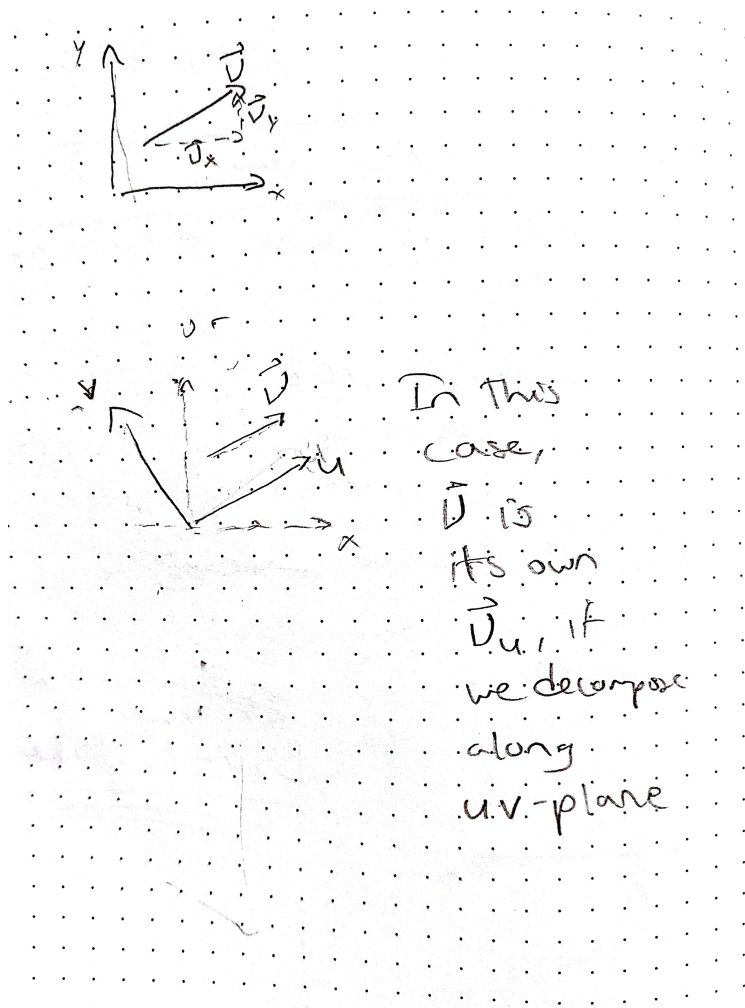 y
v⃗
v⃗y
v⃗x
x
or
v
y
v⃗
u
x
In this
case,
v⃗ is
its own
v⃗u, if
we decompose
along
u.v.-plane